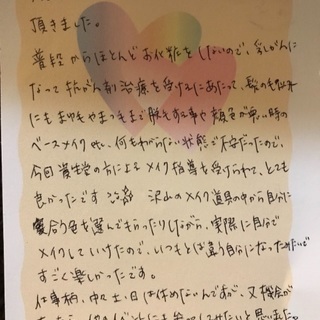 頂きました。
普段からほとんどお化粧をしないので、乳がんに
なって抗がん剤治療を受けるにあたって、髪の毛以外
にもまゆ毛やまつ毛まで脱毛する事や顔色が悪い時の
ベースメイク etc、何もわからない状態で不安だったので、
今回資生堂の方によるメイク指導を受けられて、とても
良かったです 沢山のメイク道具の中から自分に
似合う色を選んでもらったりしながら、実際に自分で
メイクしていけたので、いつもとは違う自分になったみたいで
すごく楽しかったです。
仕事柄、中々土・日は休めないんですが、又機会が